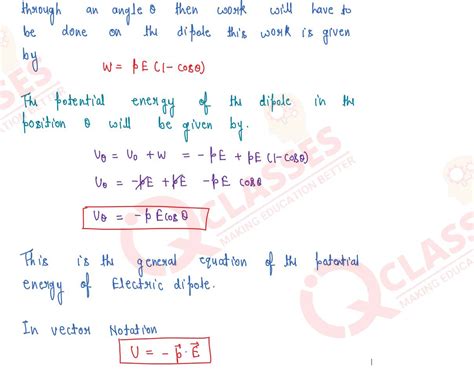 through an angle θ then work will have to
be done on the dipole this work is given
by
W = pE (1-cosθ)
The potential energy of the dipole in the
position θ will be given by.
Uθ = U₀ + W = -pE + pE (1-cosθ)
Uθ = -pE + pE -pE cosθ
Uθ = -pE cosθ
This is the general equation of the potential
energy of Electric dipole.
In vector Notation
U = -p⃗·E⃗
CLASSES
MAKING EDUCATION BETTER
CLASSES
MAKING EDUC